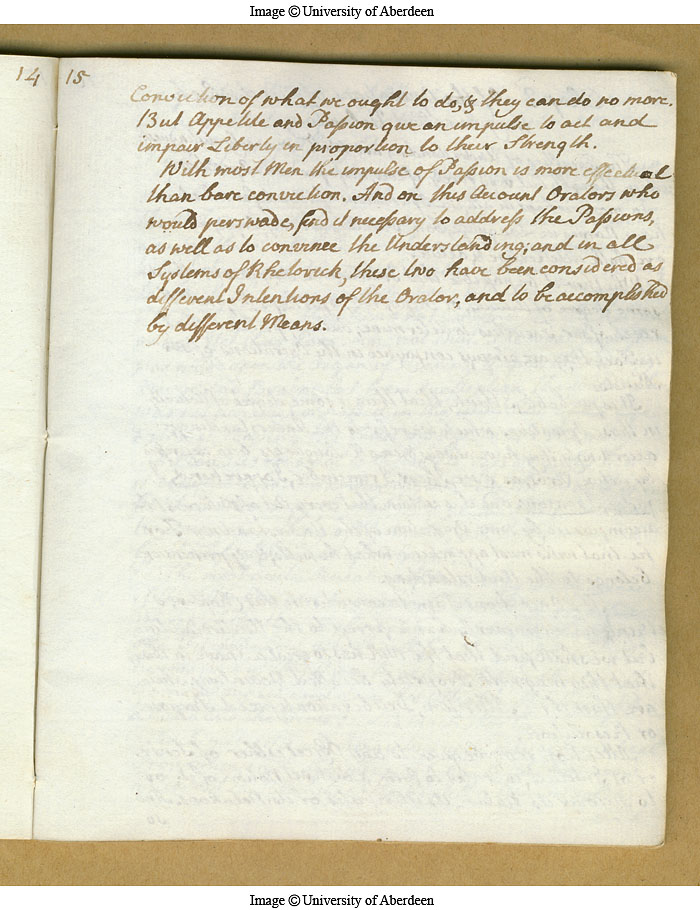 Image © University of Aberdeen
14 15
Conviction of what we ought to do, & they can do no more.
But Appetite and Passion give an impulse to act and
impair Liberty in proportion to their Strength.
With most Men the impulse of Passion is more effectual
than bare conviction. And on this Account Orators who
would perswade, find it necessary to address the Passions,
as well as to convince the Understanding; and in all
Systems of Rhetorick, these two have been considered as
different Intentions of the Orator, and to be accomplished
by different Means.
Image © University of Aberdeen